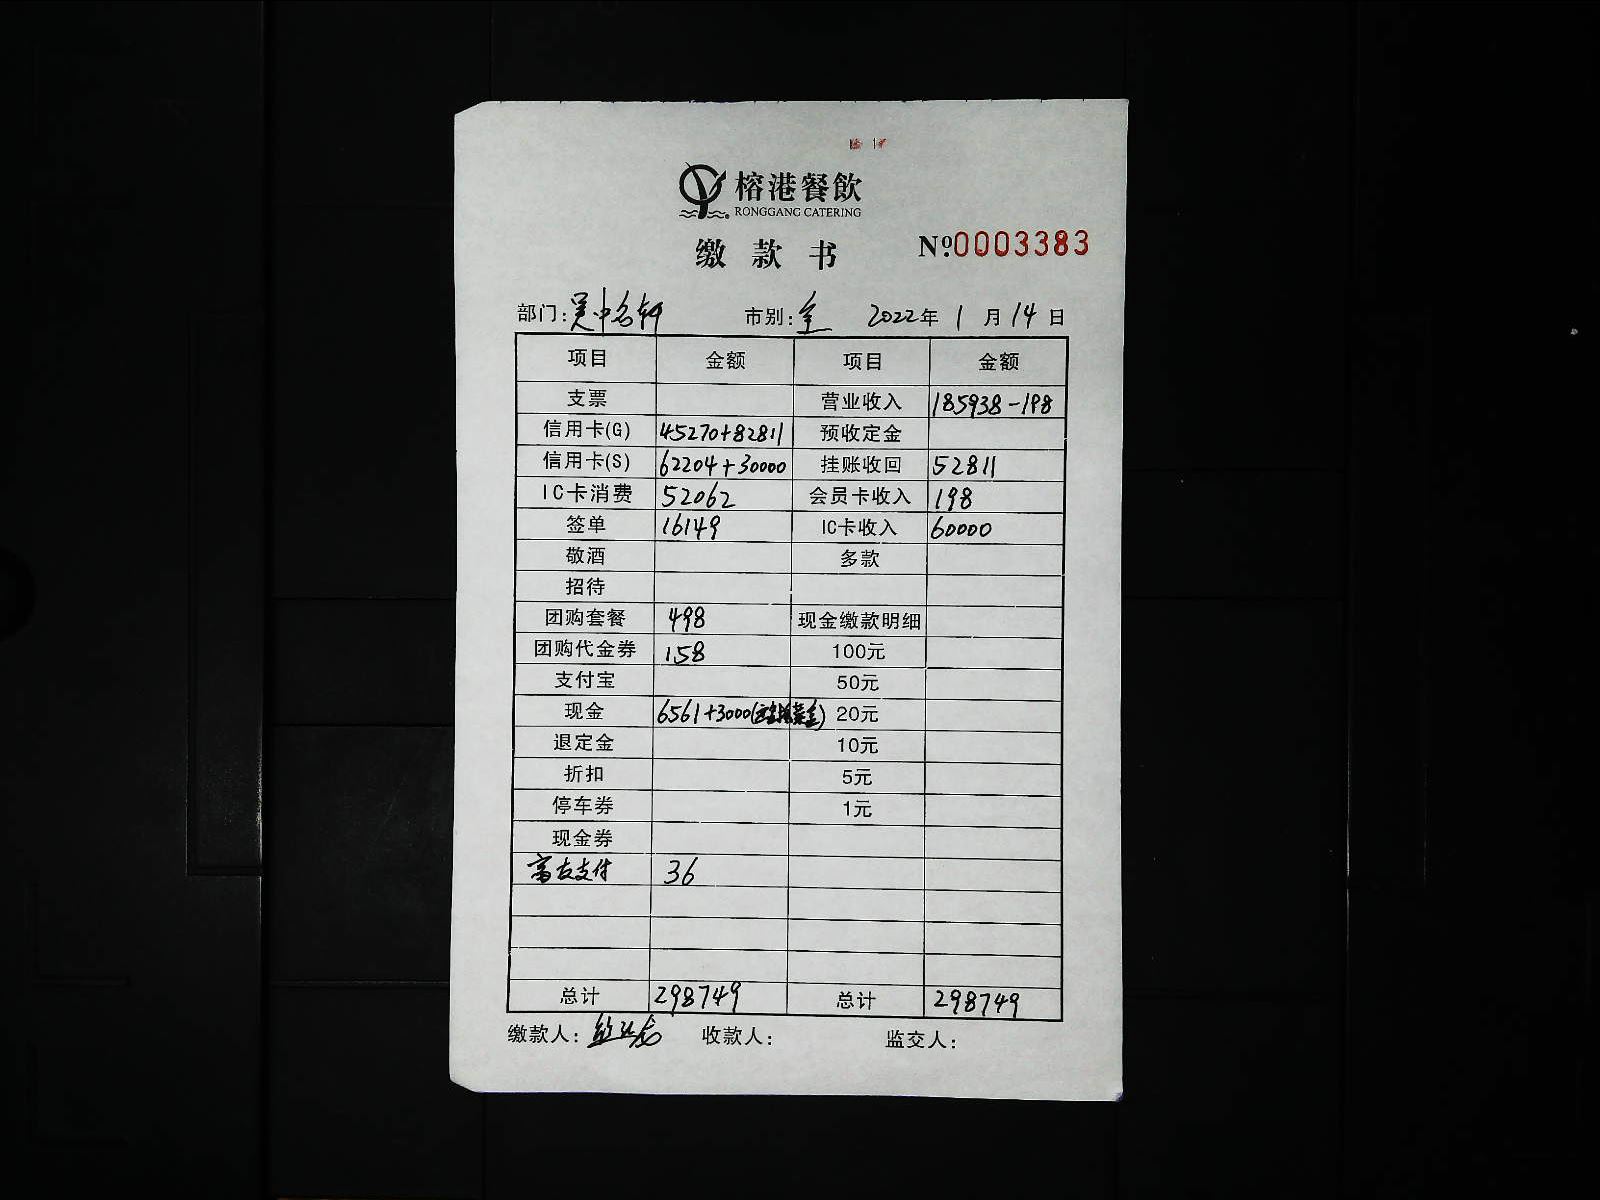 榕港餐飲
RONGGANG CATERING
缴款书 №0003383
部门:吴中名轩 市别:全 2022年1月14日
项目 金额 项目 金额
支票 营业收入 185938-198
信用卡(G) 45270+82811 预收定金
信用卡(S) 62204+30000 挂账收回 52811
IC卡消费 52062 会员卡收入 198
签单 16149 IC卡收入 60000
敬酒 多款
招待
团购套餐 498 现金缴款明细
团购代金券 158 100元
支付宝 50元
现金 6561+3000 20元
退定金 10元
折扣 5元
停车券 1元
现金券
富友支付 36
总计 298749 总计 298749
缴款人: 收款人: 监交人: